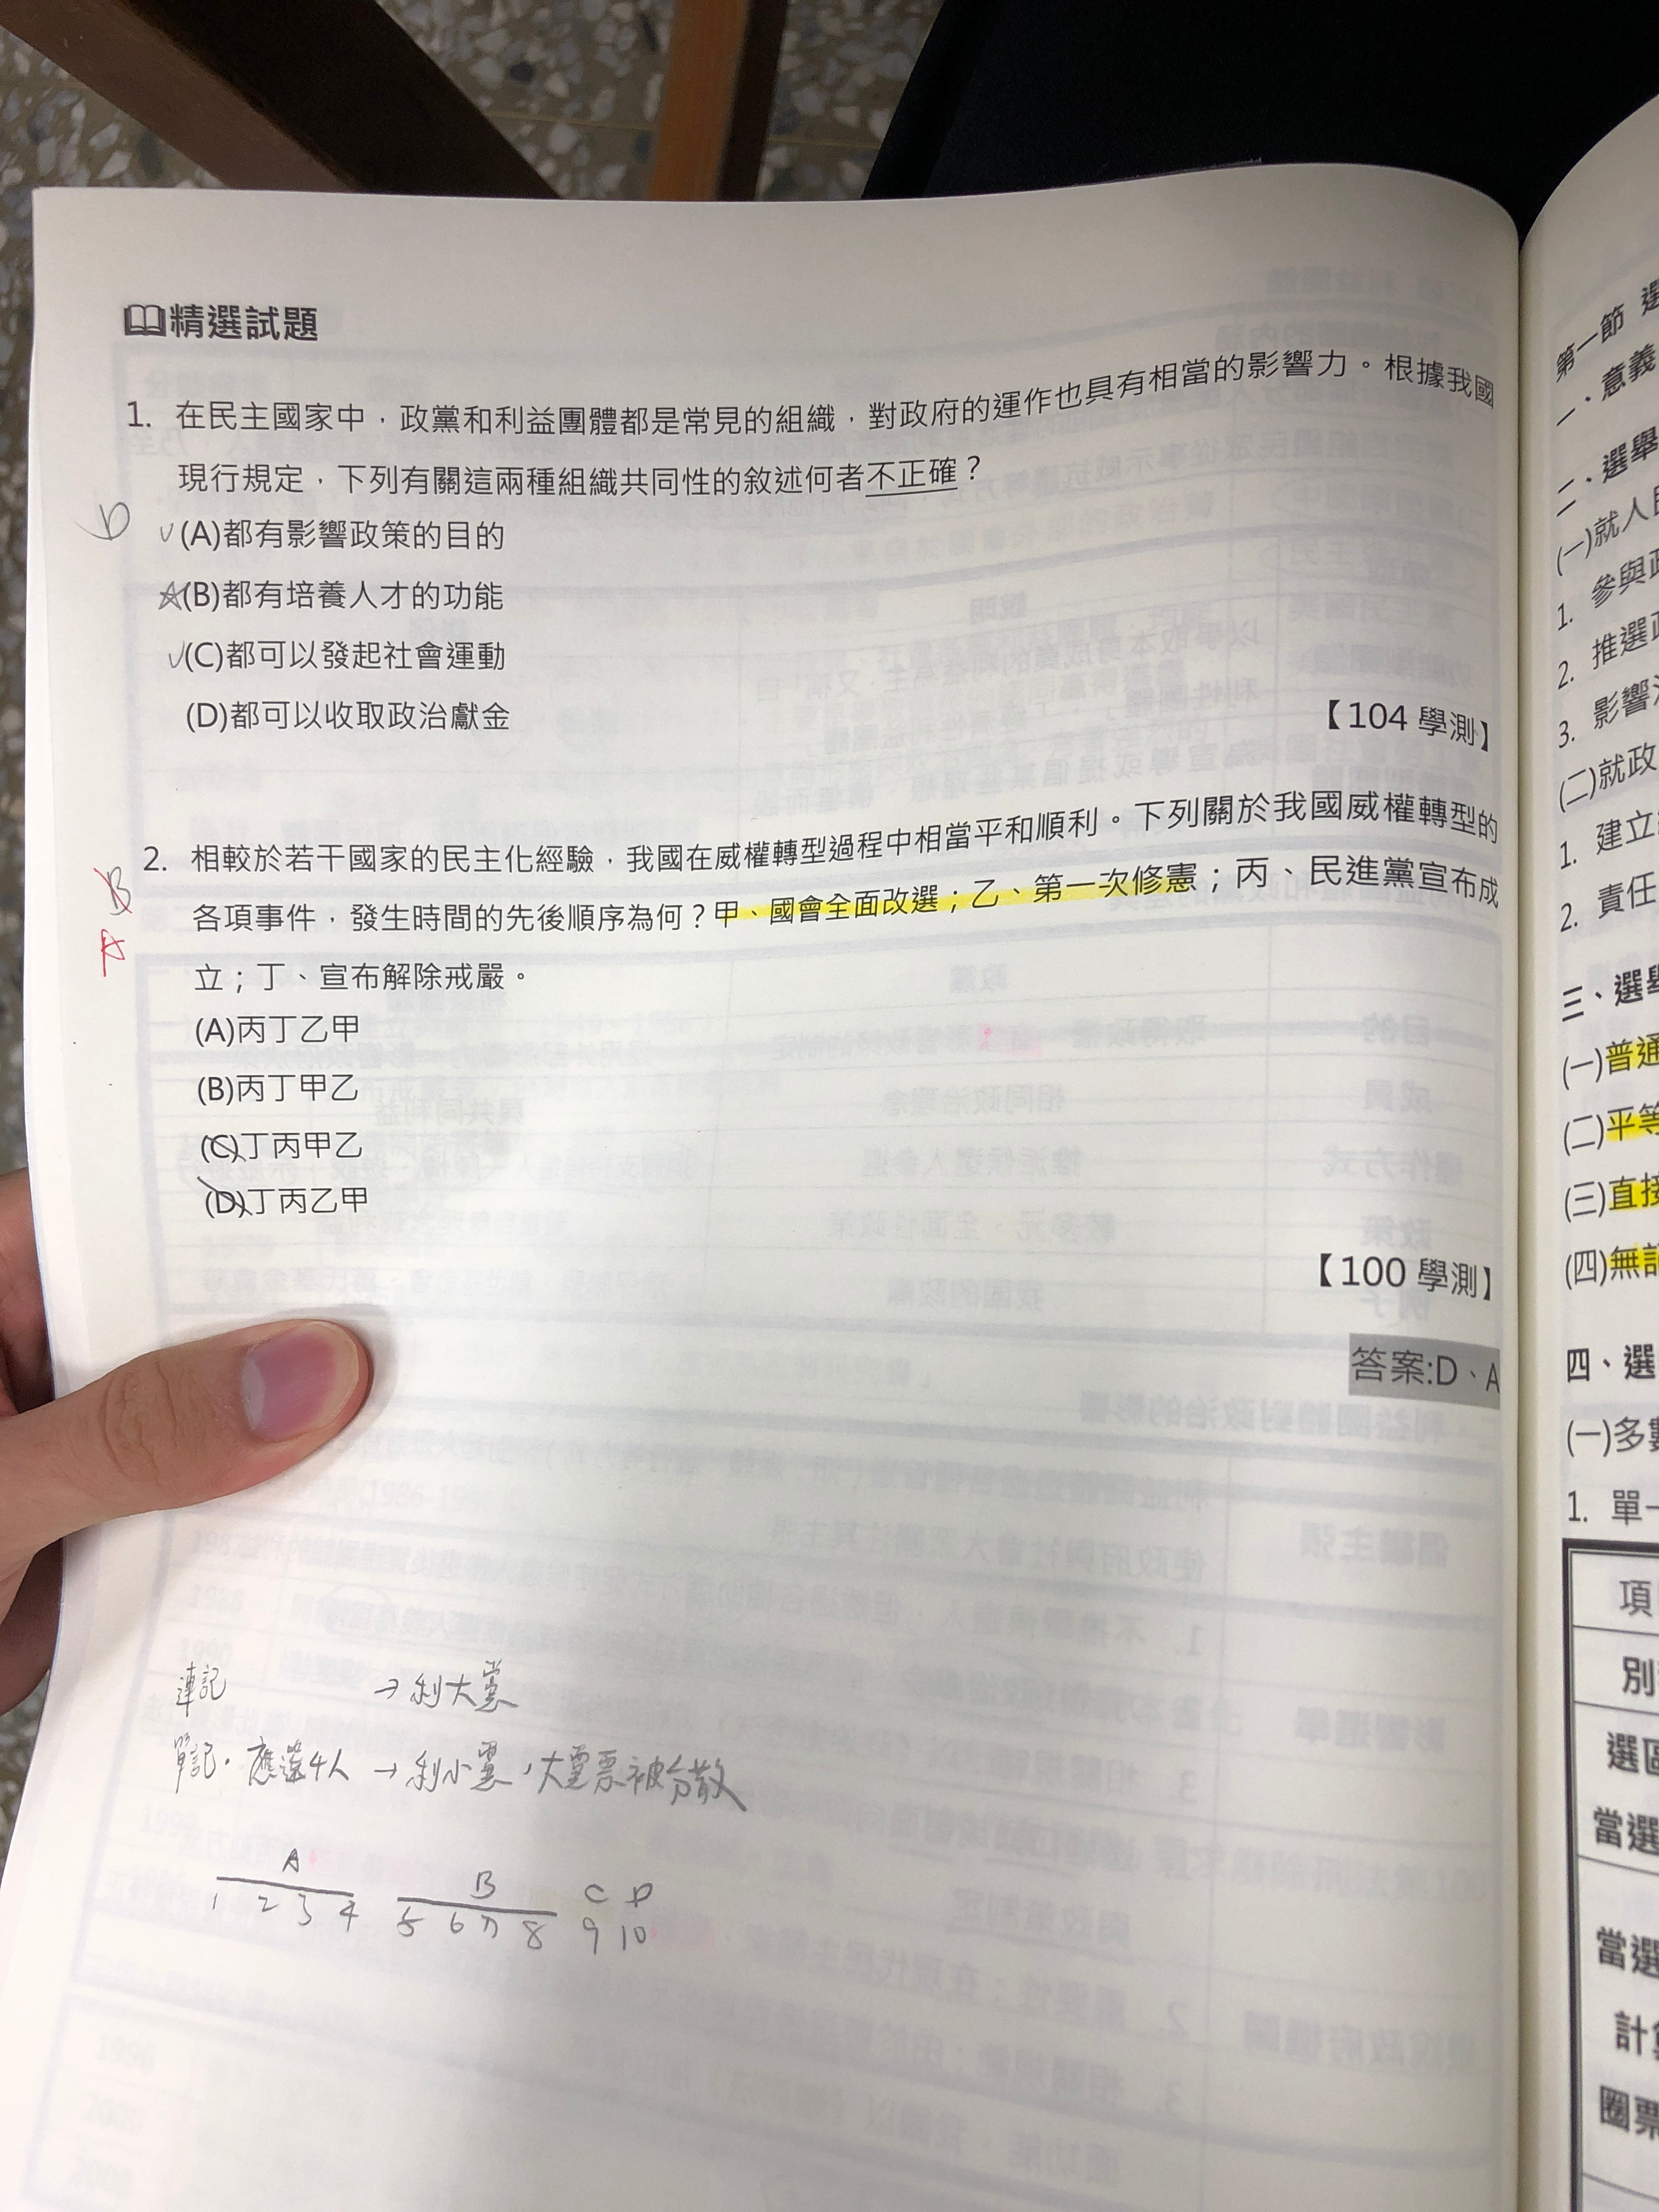 精選試題
1. 在民主國家中，政黨和利益團體都是常見的組織，對政府的運作也具有相當的影響力。根據我國
現行規定，下列有關這兩種組織共同性的敘述何者不正確？
D
(A)都有影響政策的目的
(B)都有培養人才的功能
(C)都可以發起社會運動
(D)都可以收取政治獻金
【104 學測】
2. 相較於若干國家的民主化經驗，我國在威權轉型過程中相當平和順利。下列關於我國威權轉型的
B
各項事件，發生時間的先後順序為何？甲、國會全面改選；乙、第一次修憲；丙、民進黨宣布成
A
立；丁、宣布解除戒嚴。
(A)丙丁乙甲
(B)丙丁甲乙
(C)丁丙甲乙
(D)丁丙乙甲
【100 學測】
答案:D、A
連記 → 利大黨
單記．應選4人 → 利小黨，大黨票被分散
A B C D
1 2 3 4 5 6 7 8 9 10
第一節 選
一、意義
二、選舉
(一)就人民
1. 參與政
2. 推選政
3. 影響
(二)就政
1. 建立
2. 責任
三、選舉
(一)普通
(二)平等
(三)直接
(四)無記
四、選
(一)多數
1. 單一
項
別
選區
當選
當選
計算
圈票